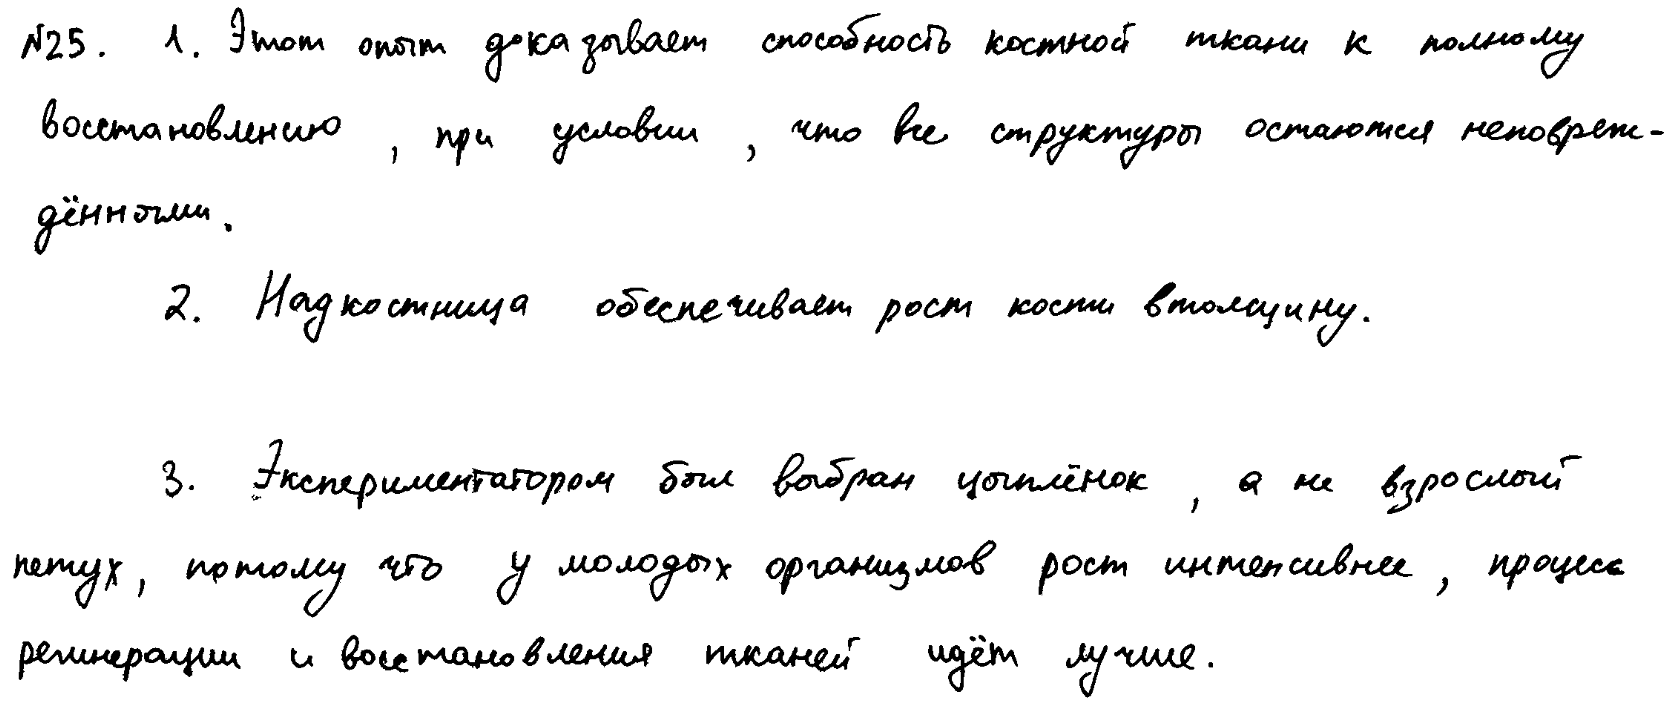 №25. 1. Этот опыт доказывает способность костной ткани к полному
восстановлению, при условии, что все структуры остаются неповреж-
дёнными.
2. Надкостница обеспечивает рост кости втолщину.
3. Экспериментатором был выбран цыплёнок, а не взрослый
петух, потому что у молодых организмов рост интенсивнее, процесс
регинерации и восстановления тканей идёт лучше.